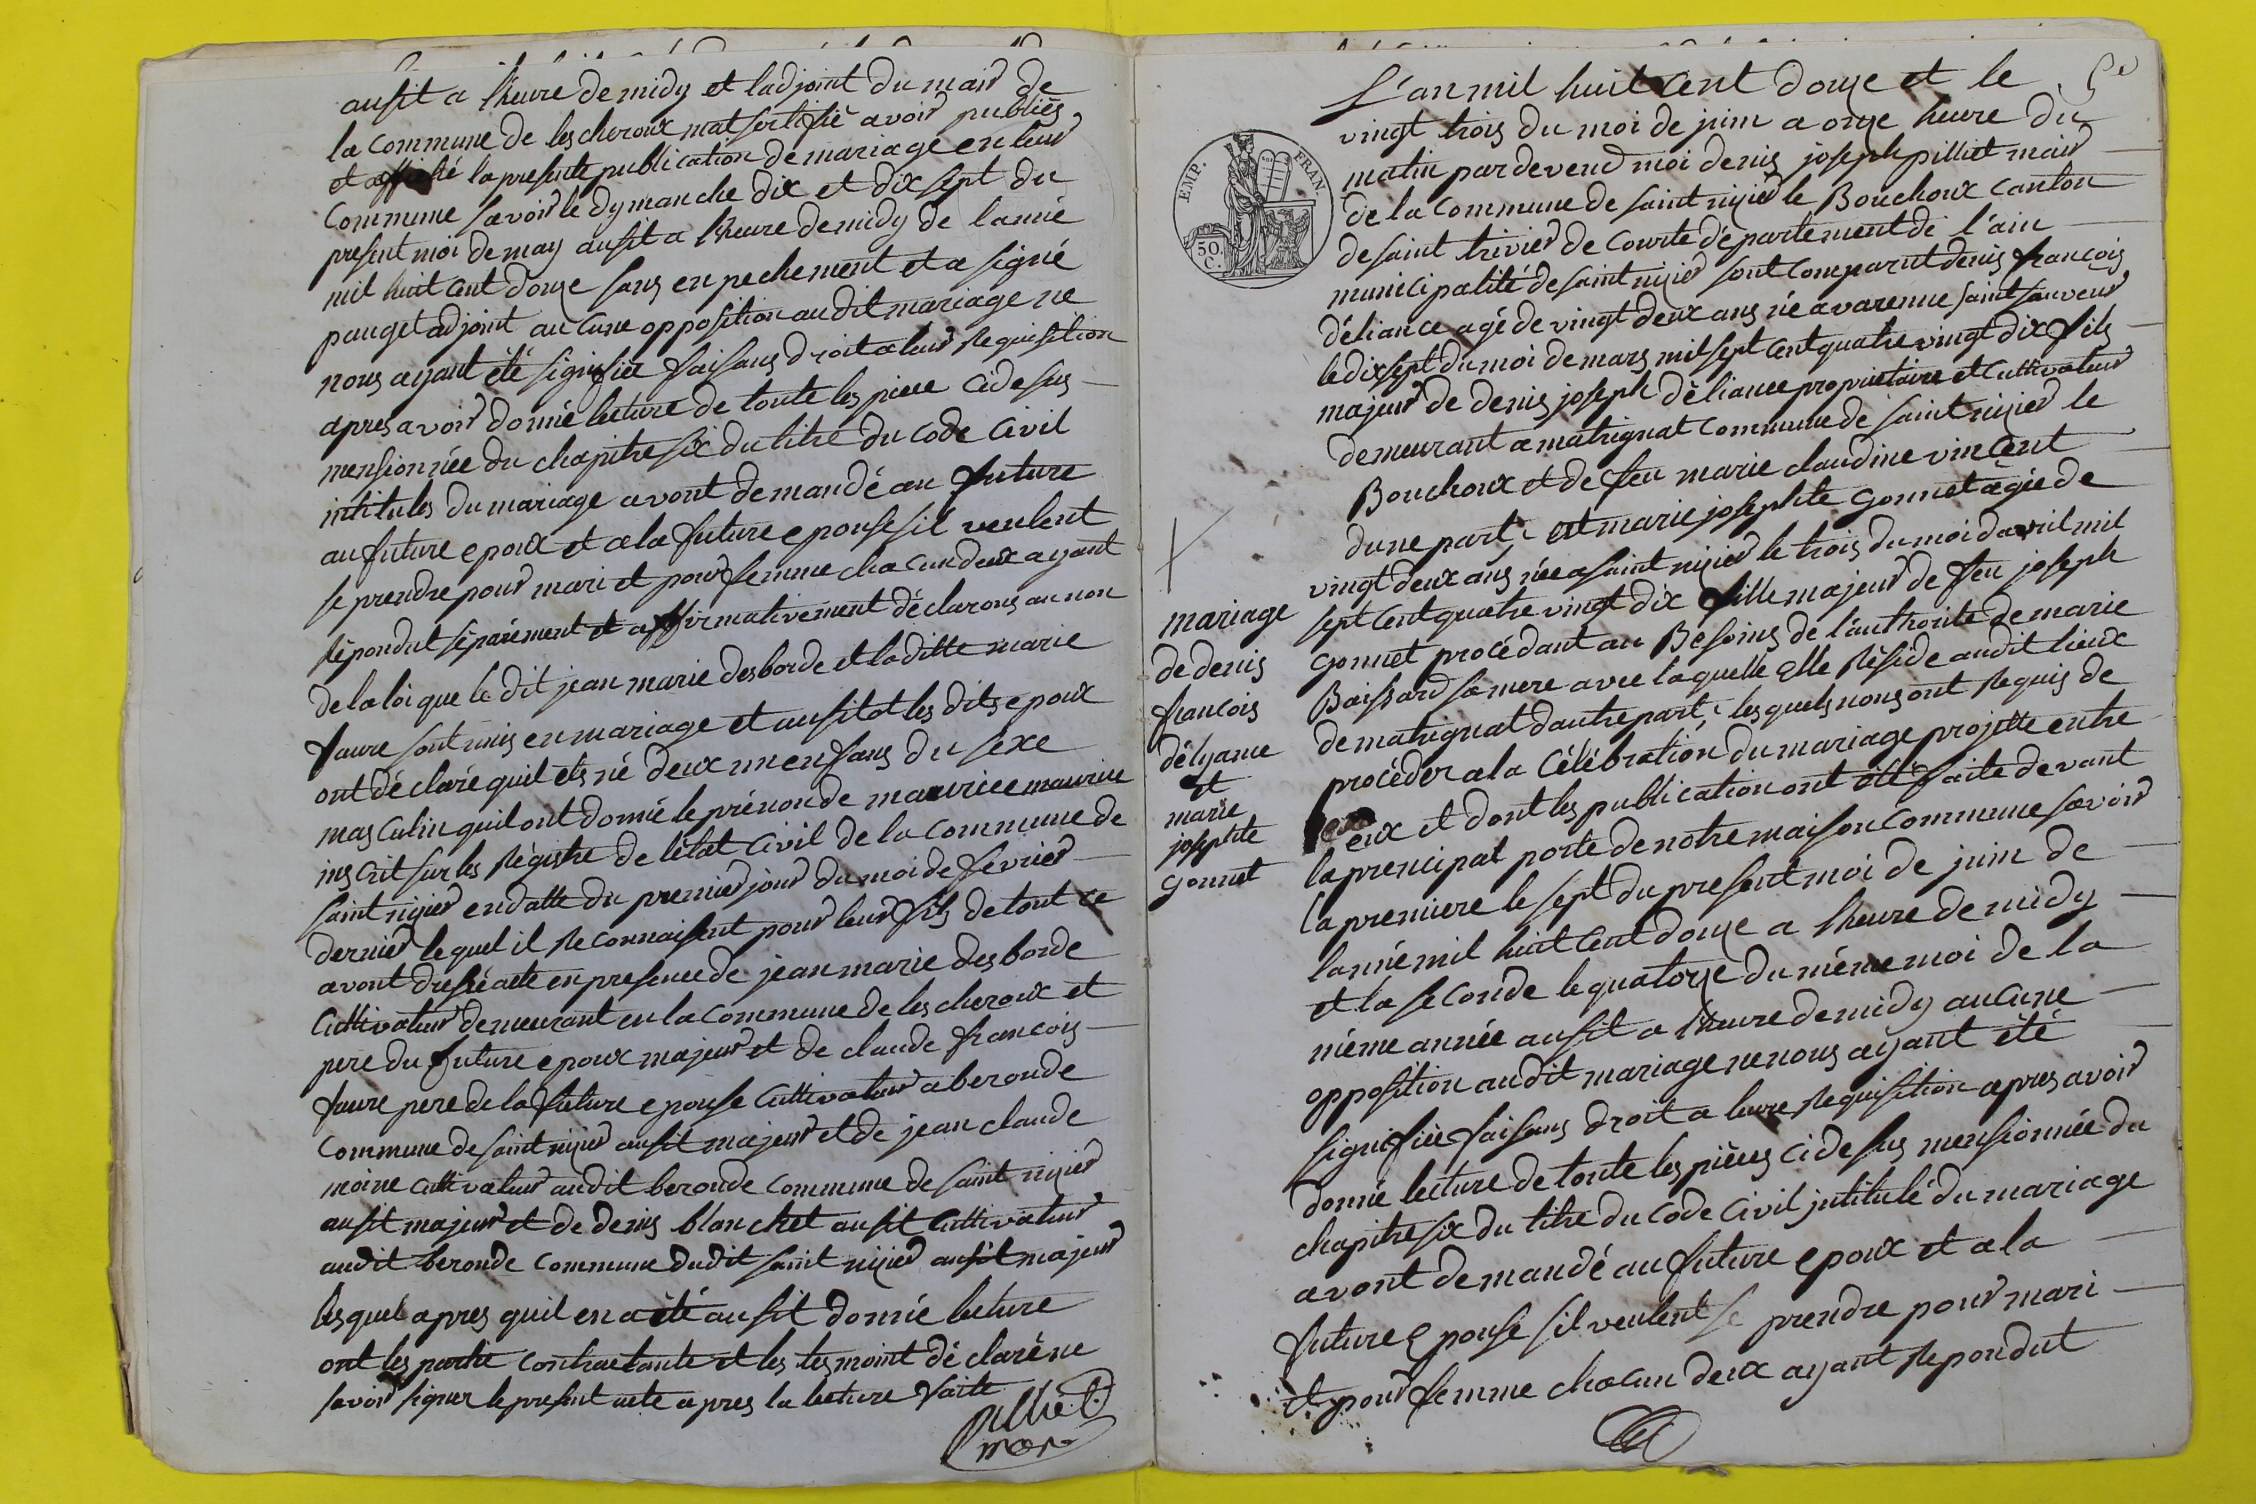 ausit a lheure de midy et ladjoint du maire de
la commune de les cheroux mat sertifié avoir publiés
et affiché la presente publication de mariage en leur
commune savoir le dymanche dix et dix sept du
present moi de may ausit a lheure de midy de lannée
mil huit cent douze sans en pechement et a signé
pauget adjoint aucune opposition audit mariage ne
nous ayant été signifiée faisans droit a leur requisition
apres avoir donnée lecture de toute les piece cidesus
mensionnée du chapitre six du titre du code civil
intitules du mariage avont demandé au future
au future epoux et a la future epouse sil veulent
se prendre pour mari et pour femme chacun deux ayant
répondut séparément et affirmativement déclarons au non
de la loi que le dit jean marie desborde et laditte marie
faure sont unis en mariage et ausitot les dits epoux
ont déclaré quil ets né deux un enfans du sexe
masculin quil ont donné le prénon de maurice maurice
inscrit sur les régistre de létat civil de la commune de
saint nizier en datte du premier jour du moi de février
dernier lequel il reconnaisent pour leur fils de tout ce
avont dressé acte en presence de jean marie desborde
cultivateur demeurant en la commune de les cheroux et
pere du future epoux majeur et de claude francois
faure pere de la future epouse cultivateur a beronde
commune de saint nizier ausit majeur et de jean claude
moine cultivateur audit beronde commune de saint nizier
ausit majeur et de denis blanchet ausit cultivateur
audit beronde commune dudit saint nizier ausit majeur
lesquel apres quil en a été ausit donnée lecture
ont les partie contractante et les tesmoint déclaré ne
savoir signer le present acte apres la lecture faite
Pilliet
maire
L'an mil huit cent douze et le
vingt trois du moi de juin a onze heure du
matin par devend moi denis joseph pilliet maire
de la commune de saint nizier le Bouchoux canton
de saint trivier de Courte département de l'ain
municipalité de saint nizier sont comparut denis francois
déliance agé de vingt deux ans né a varenne saint sauveur
le dix sept du moi de mars mil sept cent quatre vingt dix fils
majeur de denis joseph déliance proprietaire et cultivateur
demeurant a matrignat commune de saint nizier le
Bouchoux et de feu marie claudine vincent
dune part, et marie josephte gonnet agée de
vingt deux ans née a saint nizier le trois du moi davril mil
sept cent quatre vingt dix fille majeur de feu joseph
gonnet procédant au Besoins de l'authorité de marie
Baissard sa mere avec laquelle Elle réside audit lieux
de matrignat dautre part, les quels nous ont requis de
procéder a la célébration du mariage projetté entre
eux et dont les publication ont été faite devant
la prencipat porte de notre maison commune savoir
la premiere le sept du present moi de juin de
lannée mil huit cent douze a lheure de midy
et la seconde le quatorze du même moi de la
même année ausit a lheure de midy aucune
opposition audit mariage ne nous ayant été
signifiée faisans droit a leure requisition apres avoir
donnée lecture de toute les pièces cidesus mensionnée du
chapitre six du titre du code civil intitulé du mariage
avont demandé au future epoux et a la
future epouse sil veulent se prendre pour mari
et pour femme chacun deux ayant repondut
EMP. FRAN.
50
C.
mariage
de denis
francois
délyance
et
marie
josephte
gonnet